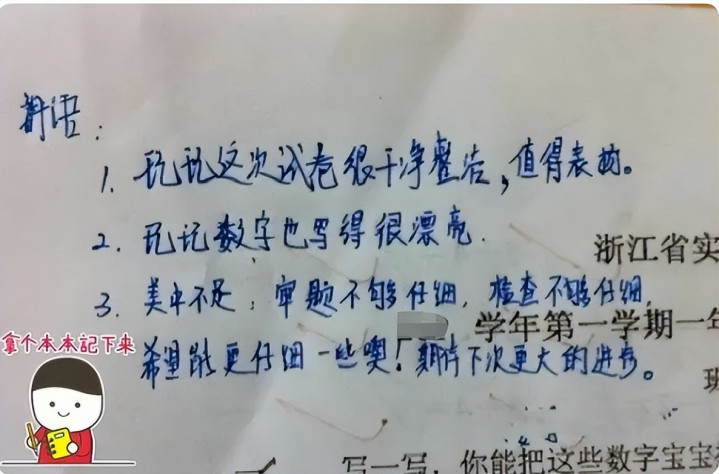 评语：
1. 玩玩这次试卷很干净整洁，值得表扬。
2. 玩玩数字也写得很漂亮.
浙江省实
3. 美中不足：审题不够仔细，检查不够仔细，
学年第一学期一年
拿个本本記下来
希望能更仔细一些噢！期待下次更大的进步。
班
写一写，你能把这些数字宝宝